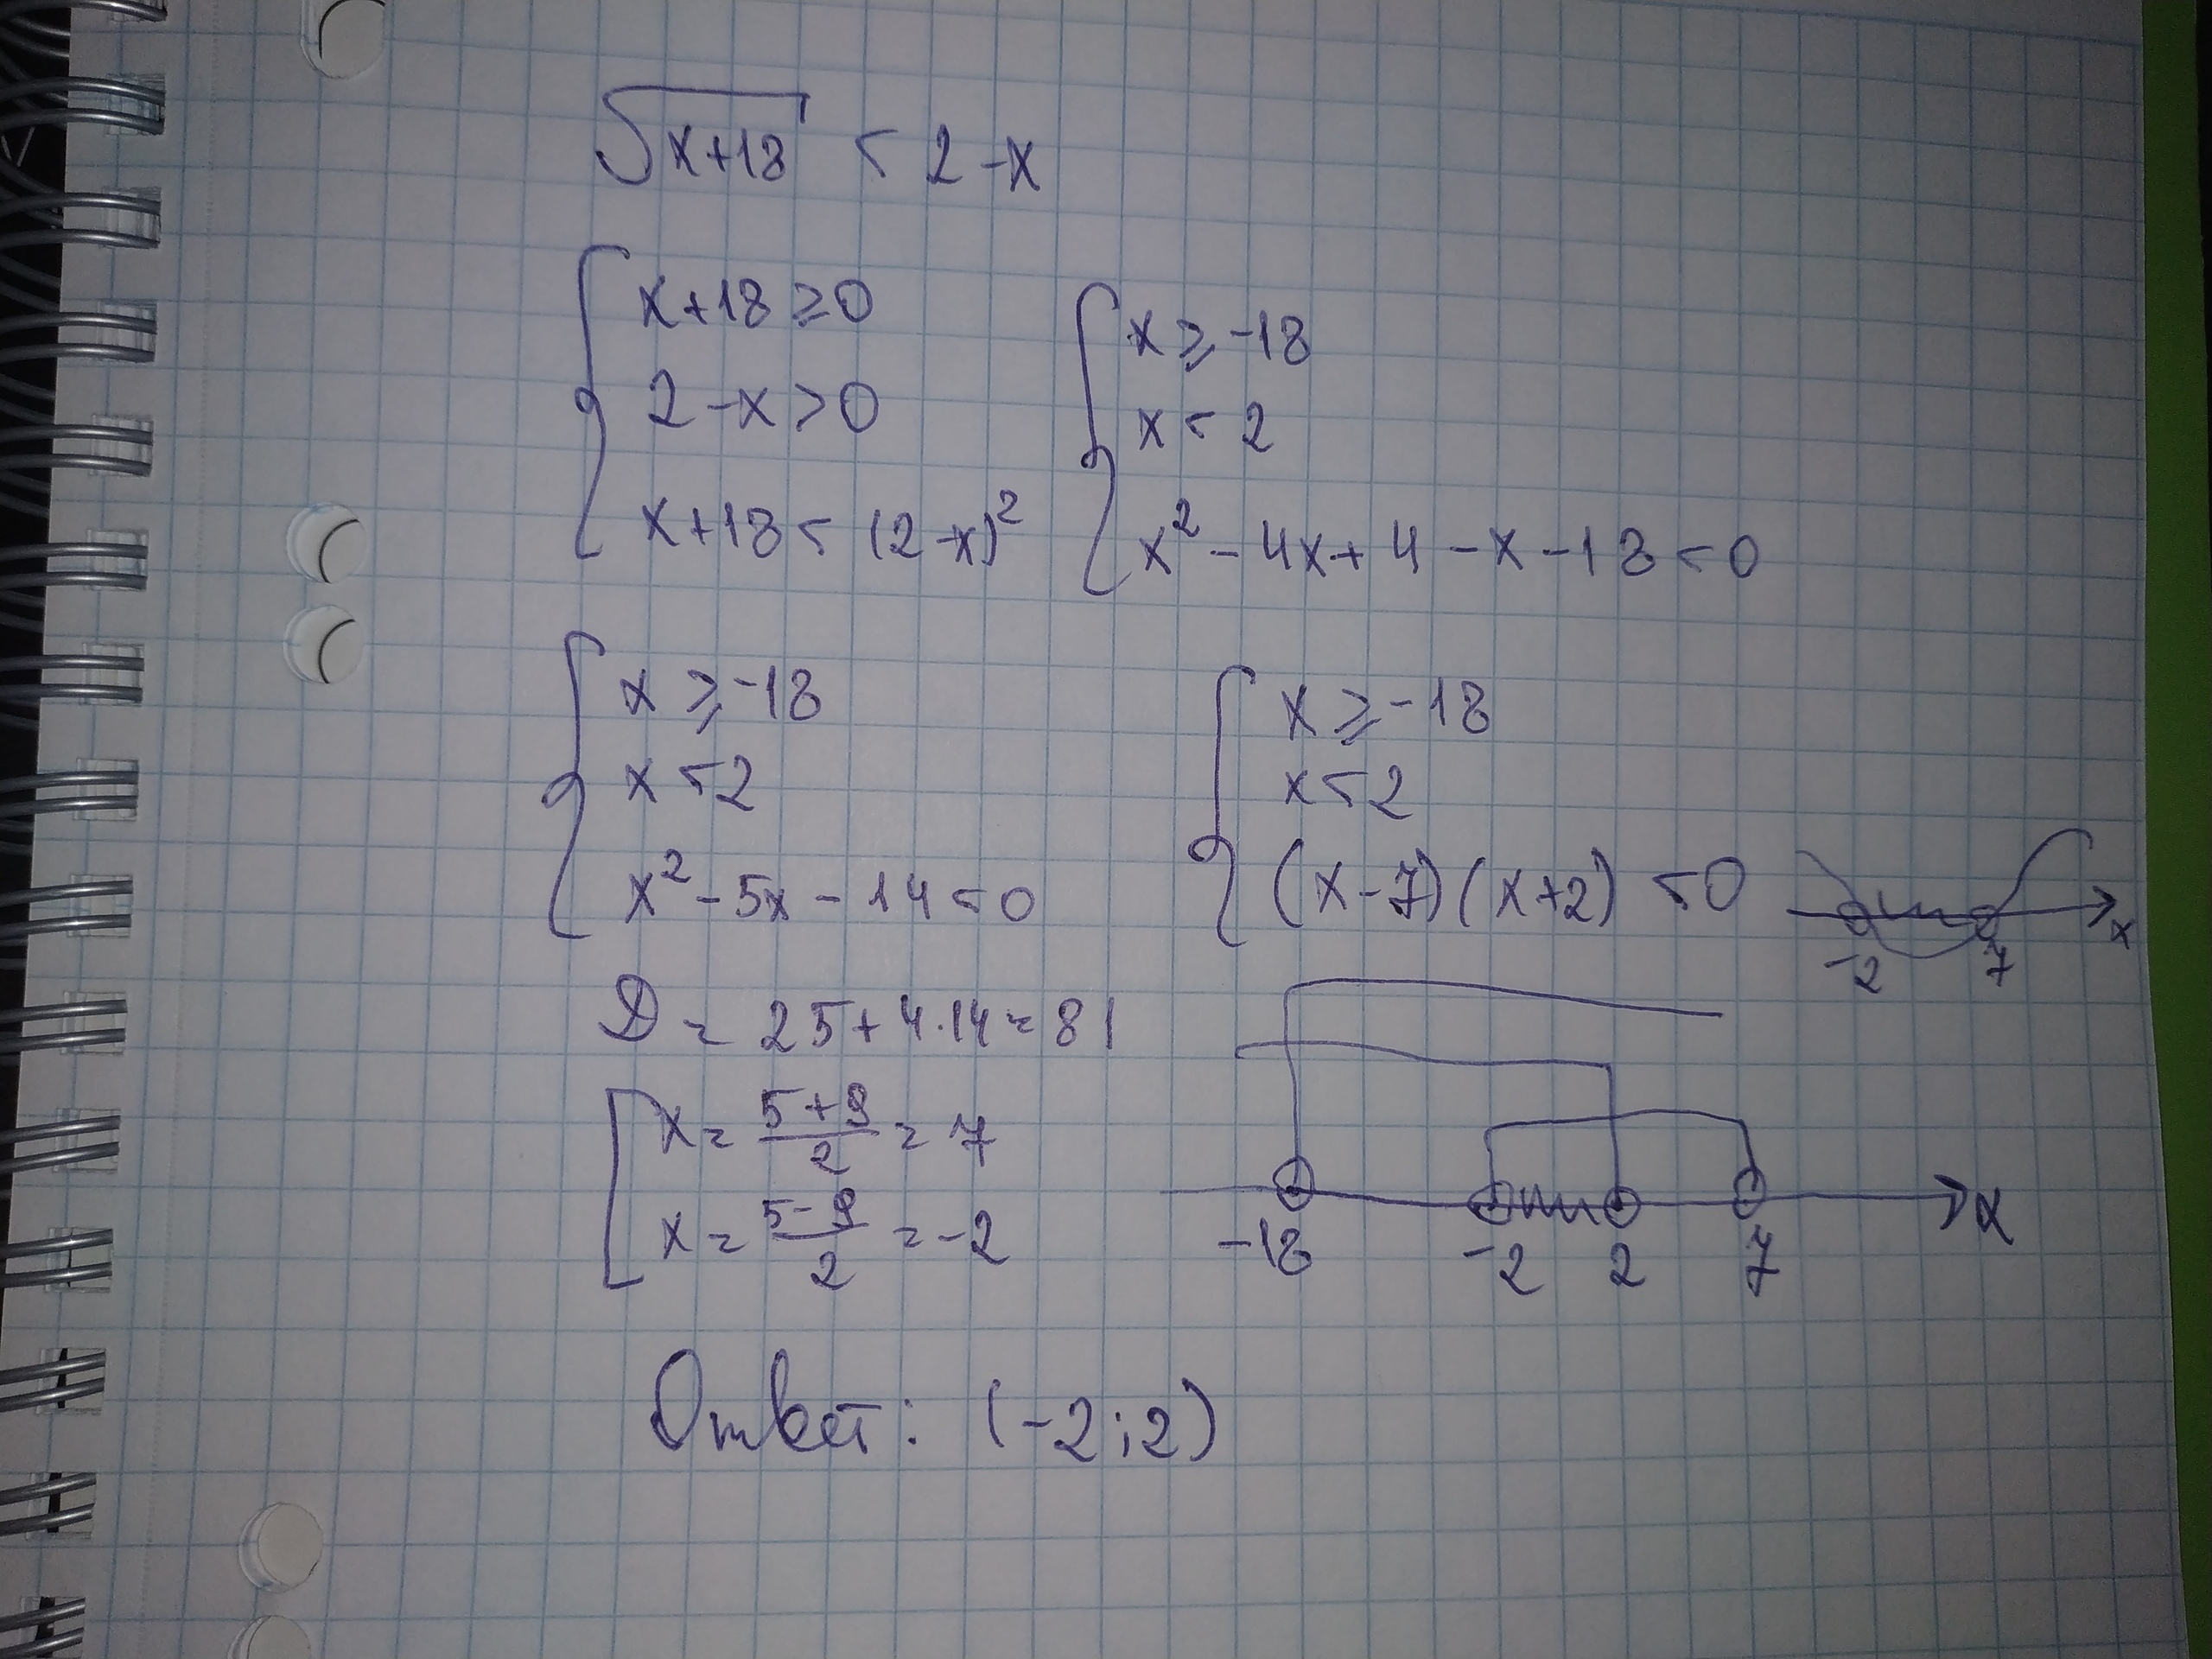 √x+18 < 2-x
x+18≥0
2-x>0
x+18<(2-x)²
x≥-18
x<2
x²-4x+4-x-18<0
x≥-18
x<2
x²-5x-14<0
x≥-18
x<2
(x-7)(x+2)<0
-2 7 x
D=25+4·14=81
x=5+9/2=7
x=5-9/2=-2
-18 -2 2 7 x
Ответ: (-2;2)